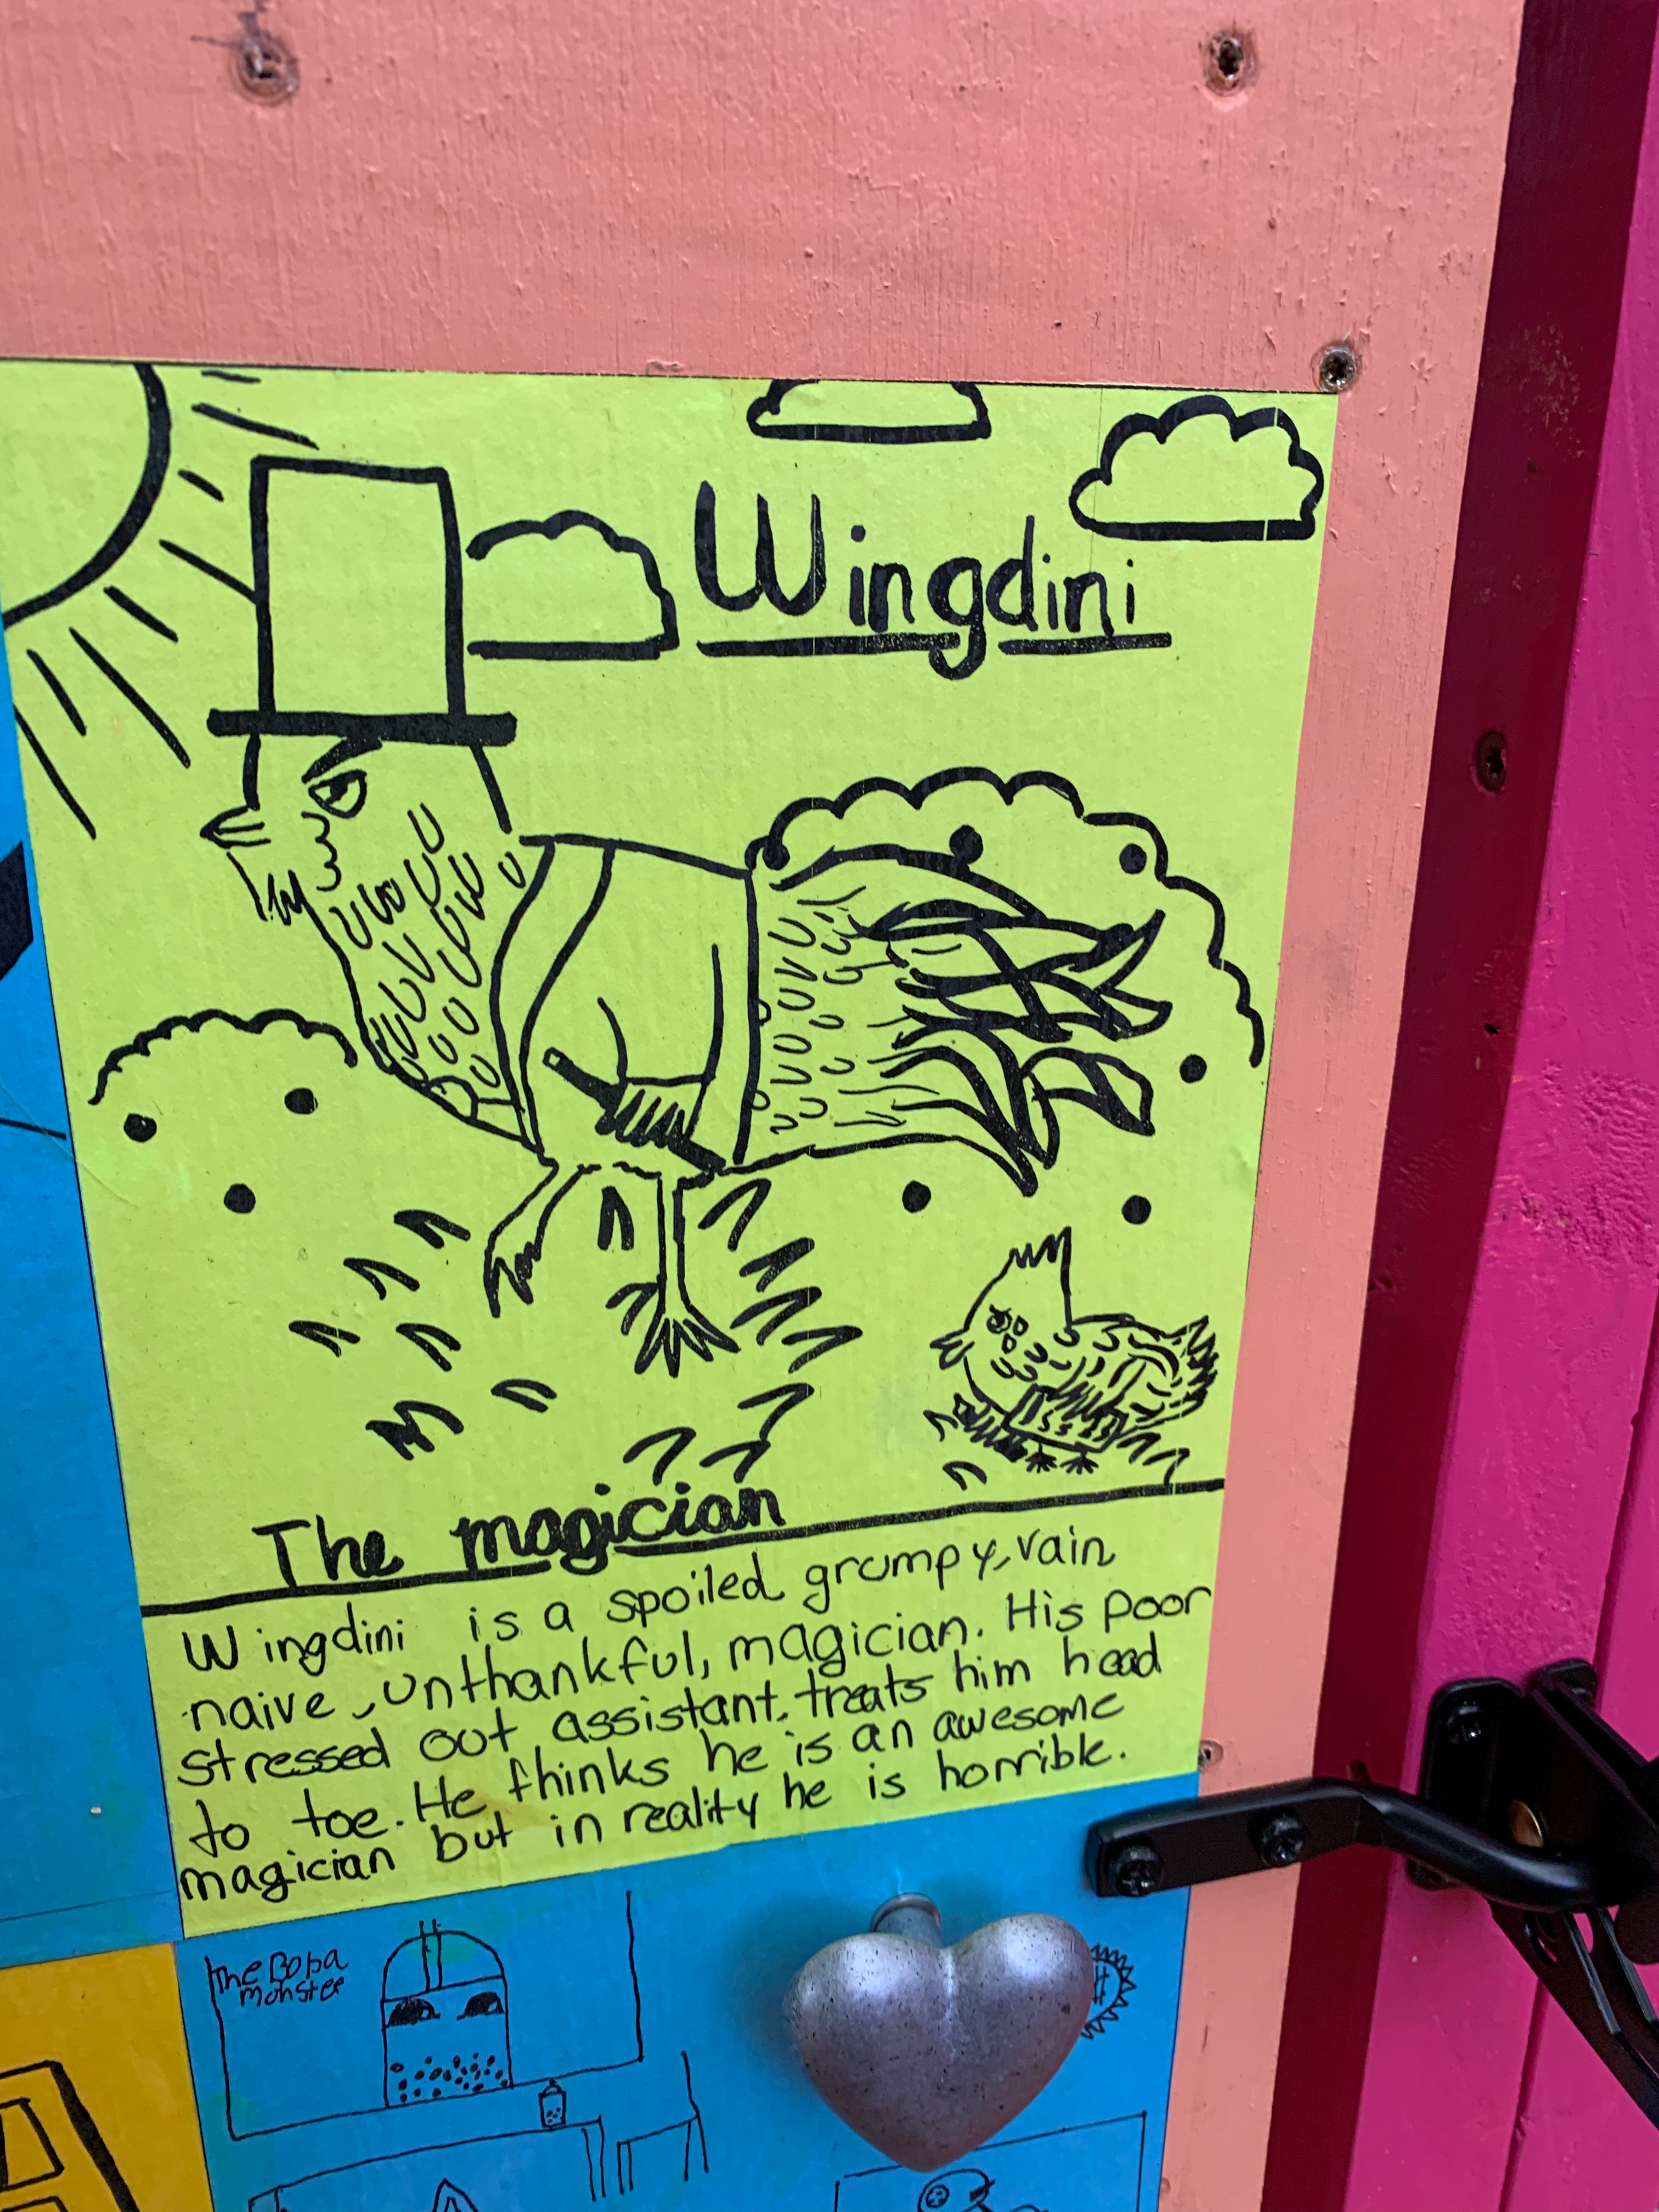 Wingdini
The magician
Wingdini is a spoiled grumpy, vain
naive, unthankful, magician. His poor
stressed out assistant, treats him head
to toe. He thinks he is an awesome
magician but in reality he is horrible.
The Boba
monster